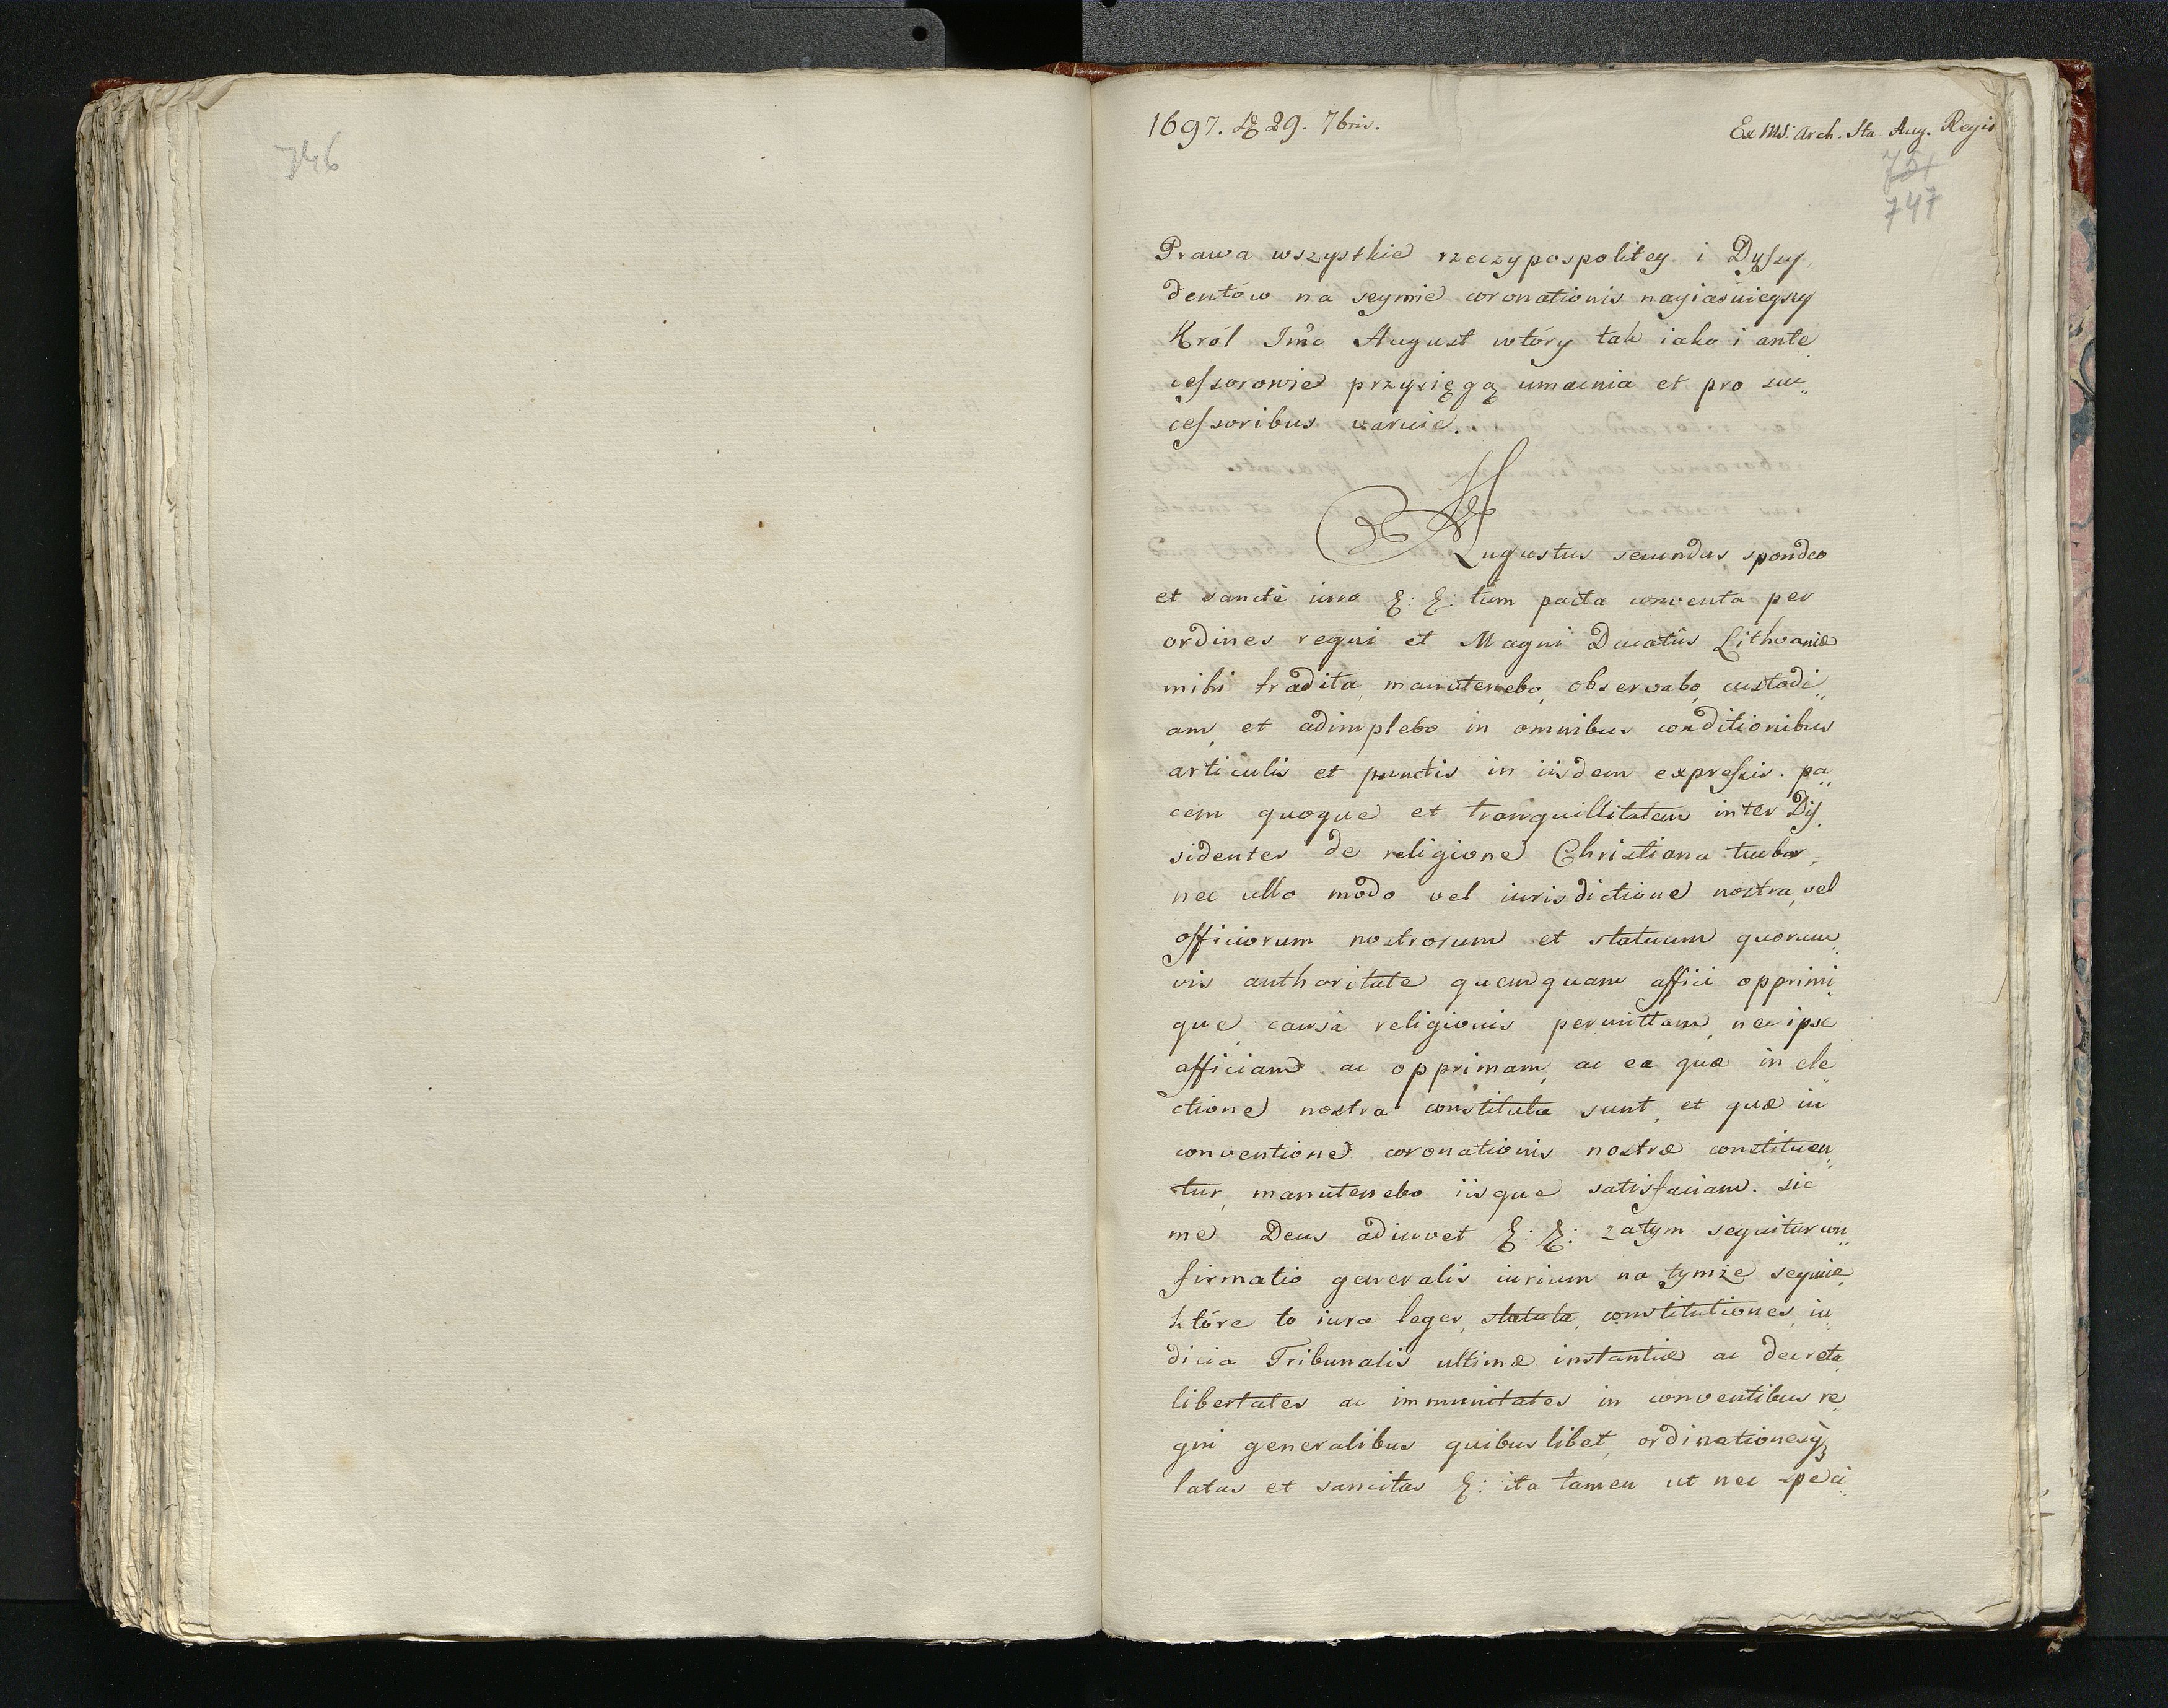 746
1697. D 29. 7bris.
Ex MS. Arch. Sta. Aug. Regis
751
747
Prawa wszystkie rzeczypospolitey i Dyſsy,,
dentów na seymie coronationis nayiaśnieyszy
Król Imć August wtóry tak iako i ante,,
ceſsorowie przysięgą umacnia et pro suc,,
ceſsoribus waruie.
Augustus secundus, spondeo
et sanctè iuro &: &: tum pacta conventa per
ordines regni et Magni Ducatûs Lithvaniæ
mihi tradita, manutenebo, observabo, custodi,,
am, et adimplebo in omnibus conditionibus
articulis et punctis in iisdem expreſsis. pa,,
cem quoque et tranquillitatem inter Dis,,
sidentes de religione Christiana tuebor,
nec ullo modo vel iurisdictione nostra, vel
officiorum nostrorum et statuum quorum,,
vis authoritate quemquam affici opprimi,,
que, causà religionis permittam, nec ipse
afficiam ac opprimam, ac ea quæ in ele,,
ctione nostra constituta sunt, et quæ in
conventione coronationis nostræ constituen,,
tur, manutenebo iisque satisfaciam. sic
me Deus adiuvet &: &: zatym sequitur con,,
firmatio generalis iurium na tymże seymie,
które to iura leges, statuta, constitutiones, iu,,
dicia Tribunalis ultimæ instantiæ ac decreta,
libertates ac immunitates in conventibus re,,
gni generalibus quibuslibet, ordinationesq3
latas et sancitas &: ita tamen ut nec speci,,